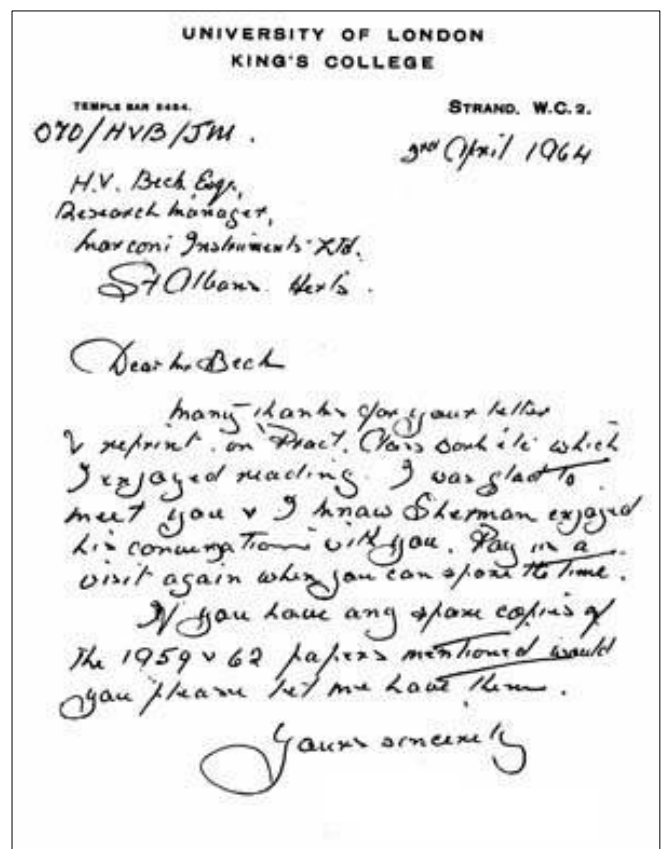 UNIVERSITY OF LONDON
KING'S COLLEGE
TEMPLE BAR 5454.
STRAND. W.C.2.
070/HVB/JM.
3rd April 1964
H.V. Beck Esq.,
Research Manager,
Marconi Instruments Ltd.
St Albans. Herts.
Dear Mr Beck
Many thanks for your letter
& reprint on Pract. Class work etc which
I enjoyed reading. I was glad to
meet you & I know Sherman enjoyed
his conversation with you. Pay us a
visit again when you can spare the time.
If you have any spare copies of
the 1959 & 62 papers mentioned would
you please let me have them.
Yours sincerely